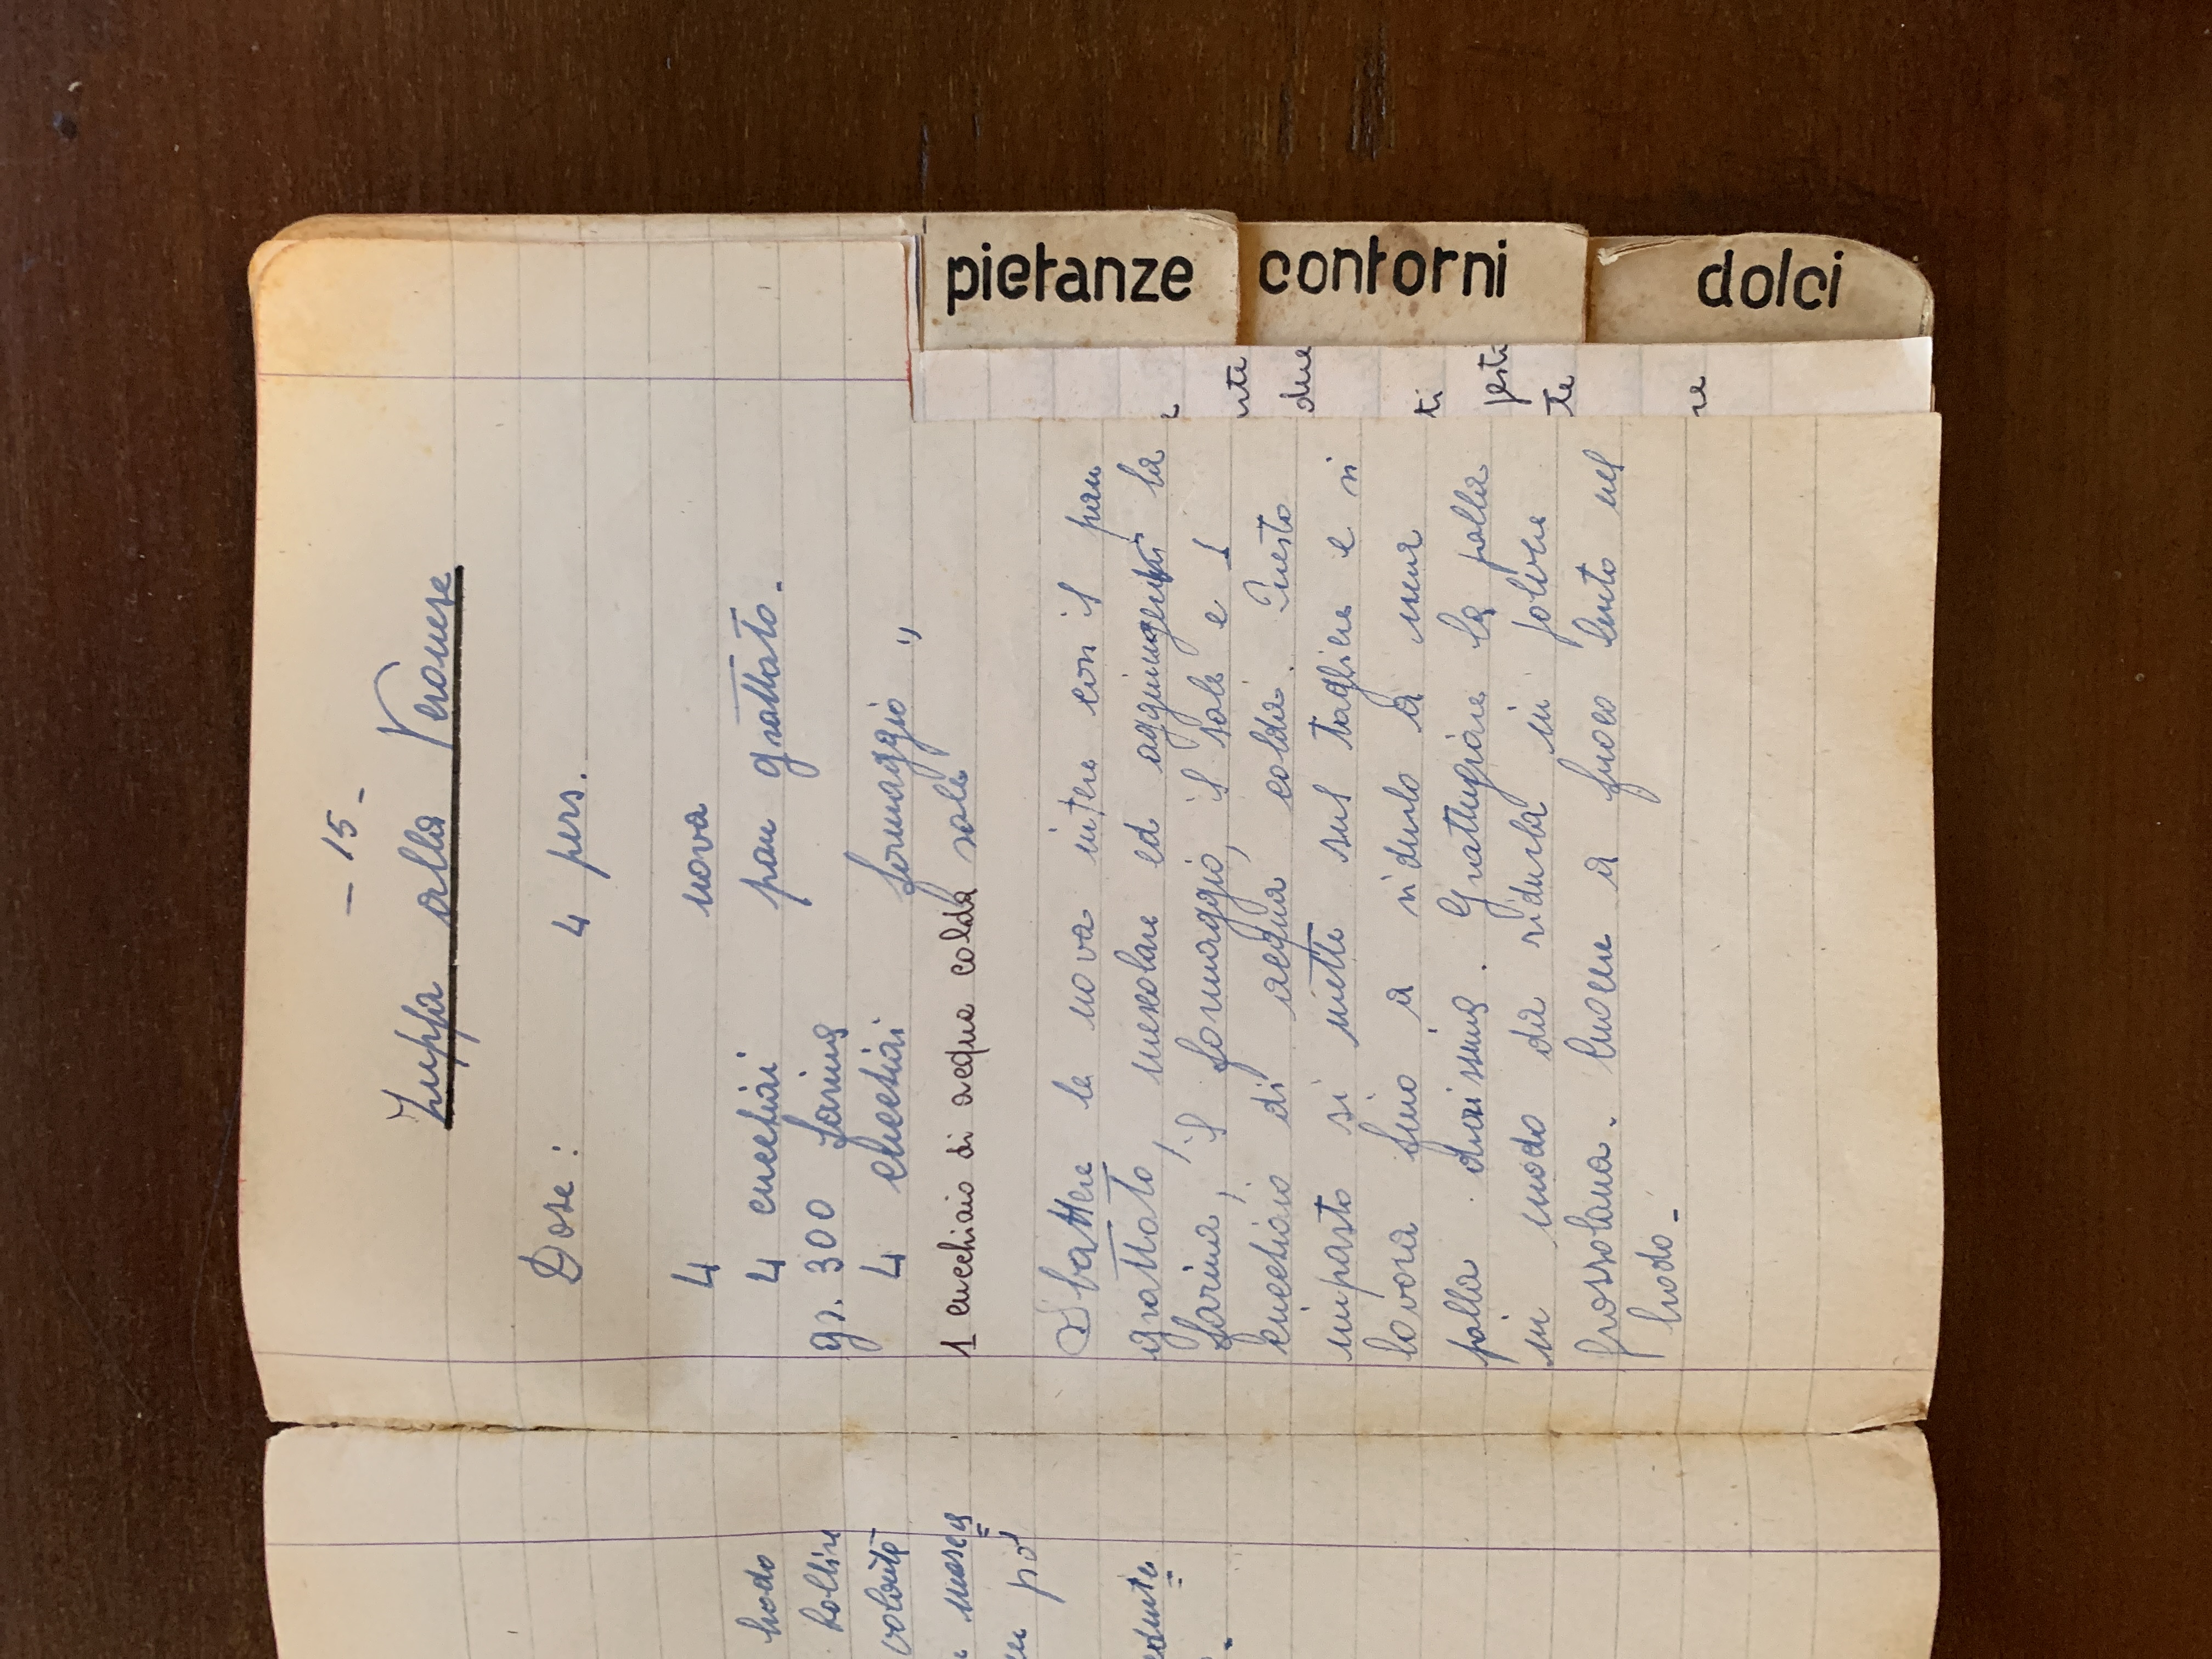 brodo
bollire
volontà
- 15 -
Zuppa alla Veronese
Dose : 4 pers.
4 uova
4 cucchiai pan grattato.
gr. 300 farina
4 cucchiai formaggio "
1 cucchiaio di acqua calda sale
Sbattere le uova intere con il pan
grattato, mescolare ed aggiungervi la
farina, il formaggio, il sale e 1
cucchiaio di acqua calda. Questo
impasto si mette sul tagliere e si
lavora fino a ridurlo a una
palla durissima. Grattugiare la palla
in modo da ridurla in polvere
grossolana. Cuocere a fuoco lento nel
brodo -
due
ti
te
re
pietanze
contorni
dolci